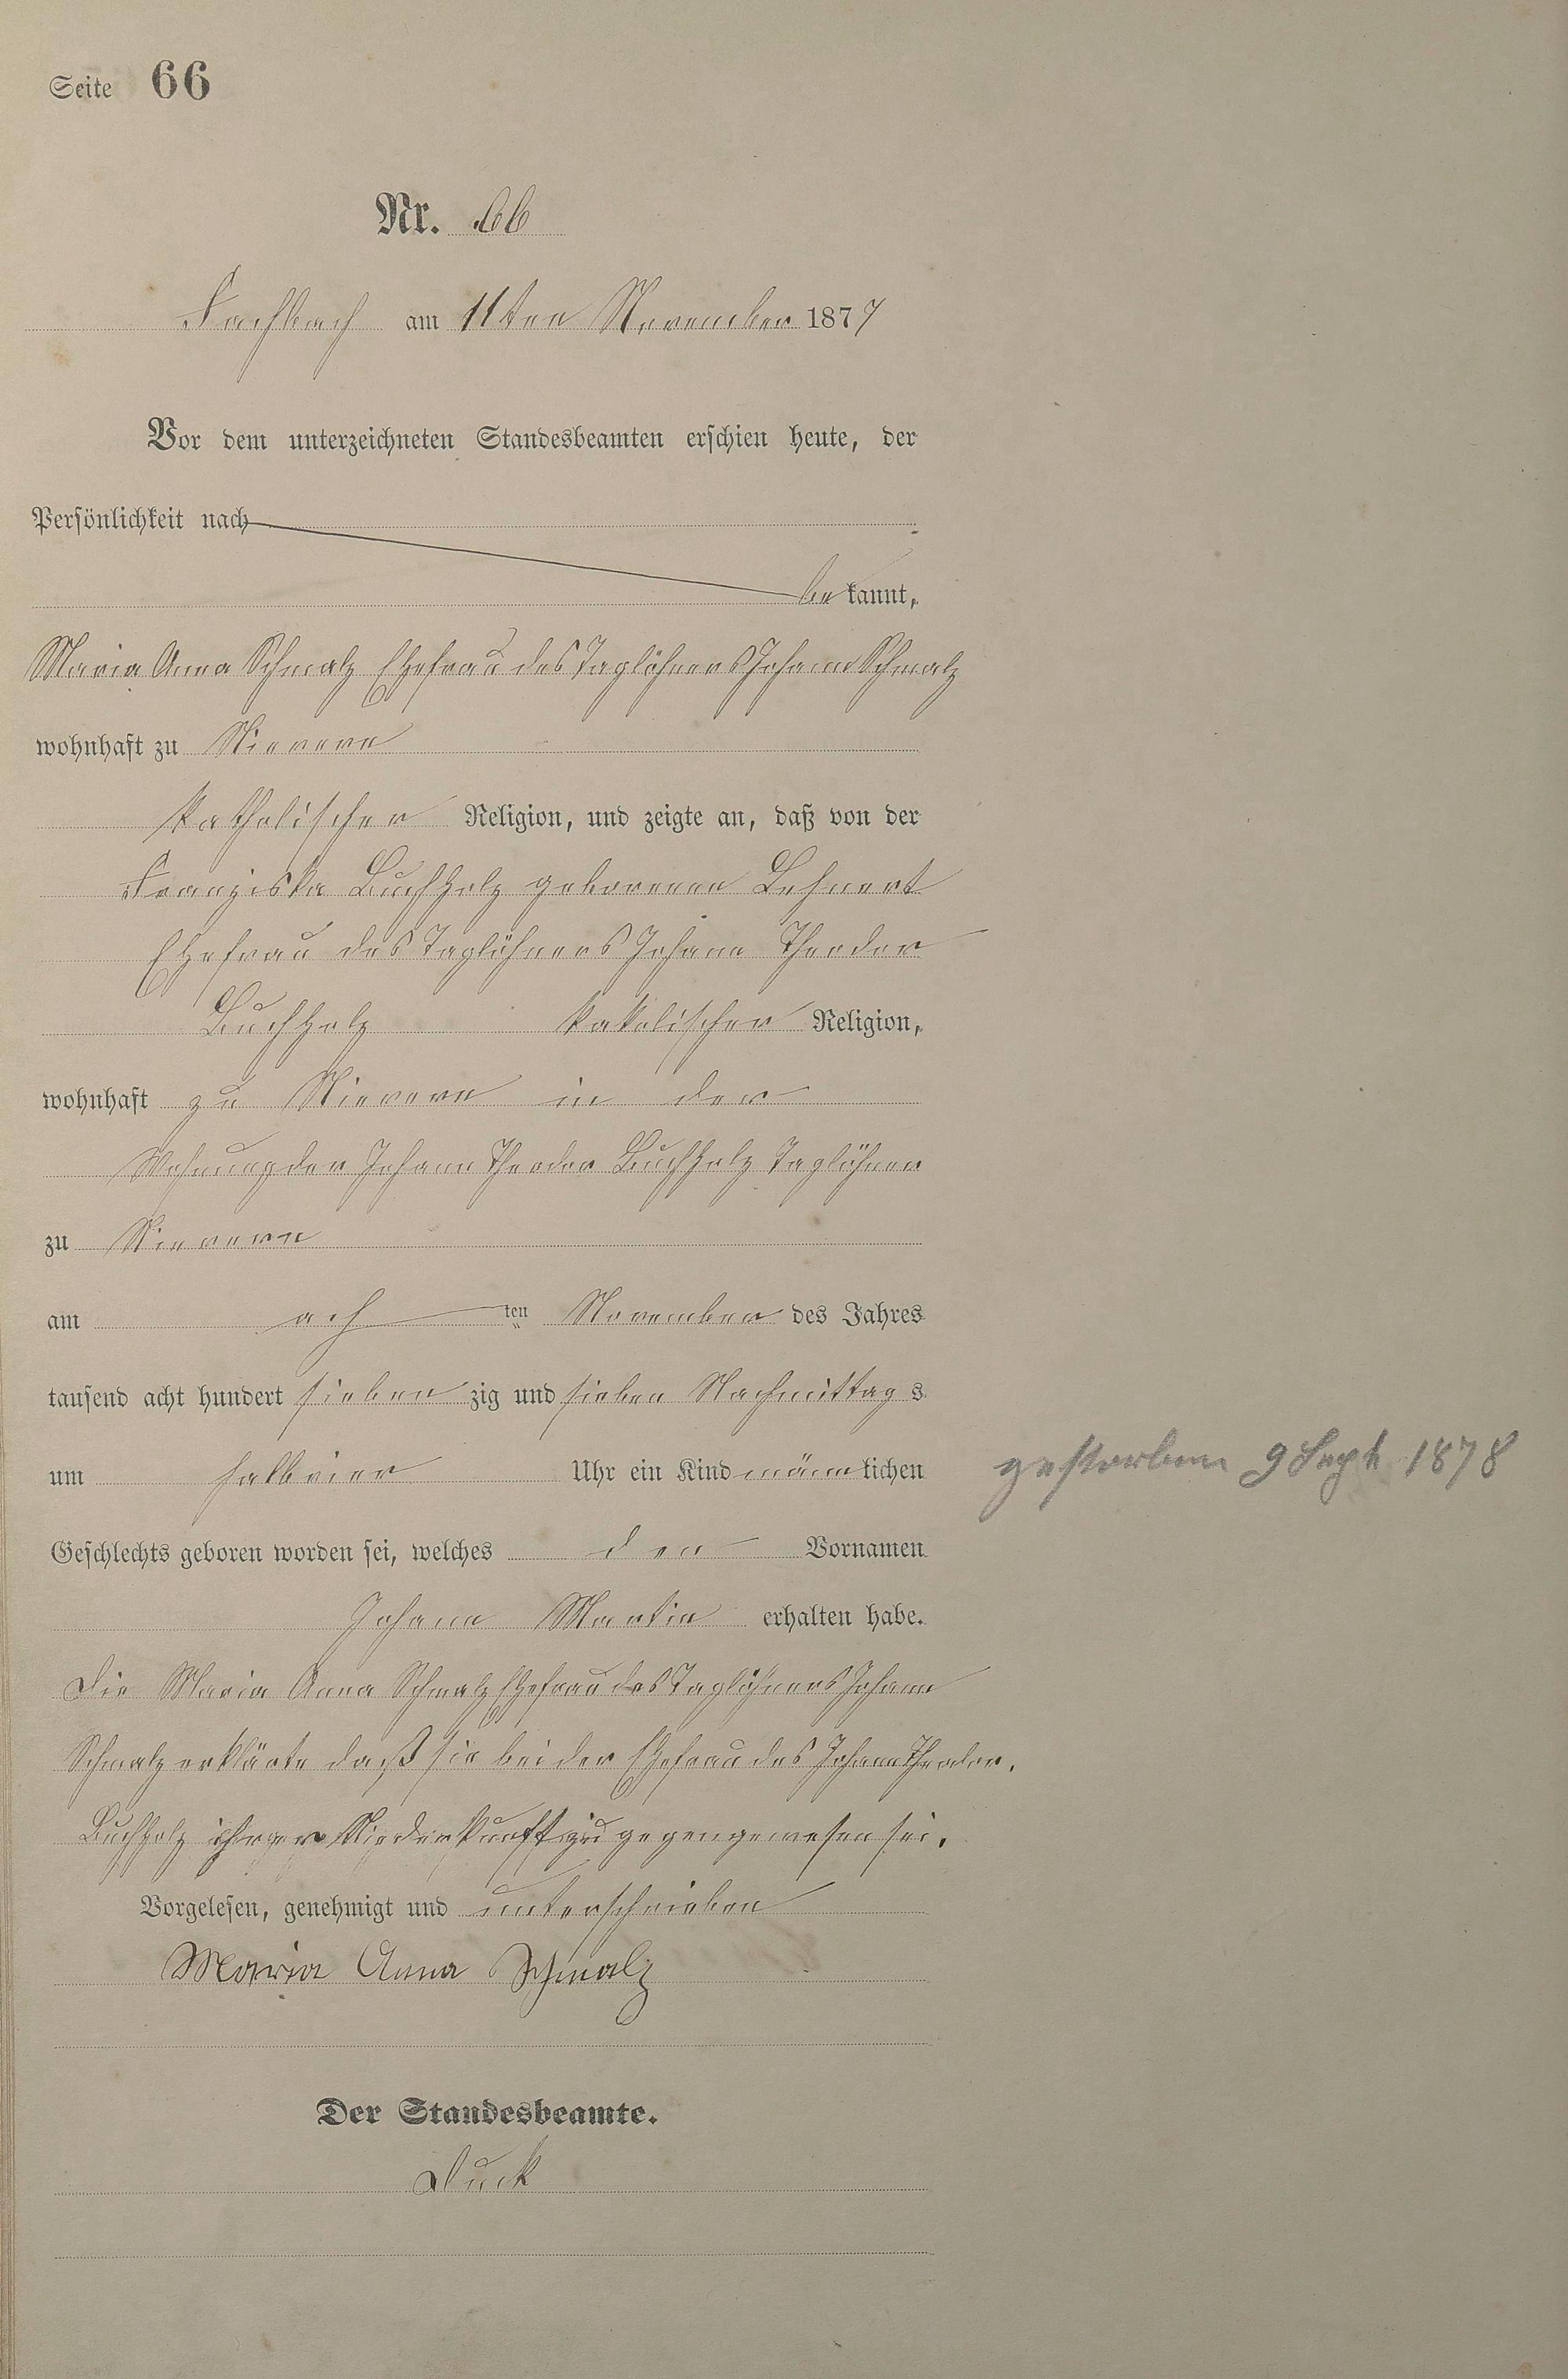 Seite 66
Nr. 66
Fachbach am 11ten November 1877
Vor dem unterzeichneten Standesbeamten erschien heute, der
Persönlichkeit nach
bekannt,
Maria Anna Schmalz Ehefrau des Taglöhners Johann Schmalz
wohnhaft zu Nievern
Katholischer Religion, und zeigte an, daß von der
Franziska Buchholz geborenen Lehnert
Ehefrau des Taglöhners Johann Theodor
Buchholz katolischer Religion,
wohnhaft zu Nievern in der
Wohnung der Johann Theodor Buchholz Taglöhner
zu Nievern
am ach ten November des Jahres
tausend acht hundert sieben zig und sieben Nachmittags
um halbvier Uhr ein Kind männlichen
gestorben 9 Sept 1878
Geschlechts geboren worden sei, welches den Vornamen
Johann Martin erhalten habe.
Die Maria Anna Schmalz Ehefrau des Taglöhners Johann
Schmalz erklärte daß sie bei der Ehefrau des Johann Theodor.
Buchholz ihrer Niederkunft zu gegengewesen sei.
Vorgelesen, genehmigt und unterschrieben
Maria Anna Schmalz
Der Standesbeamte.
Duck